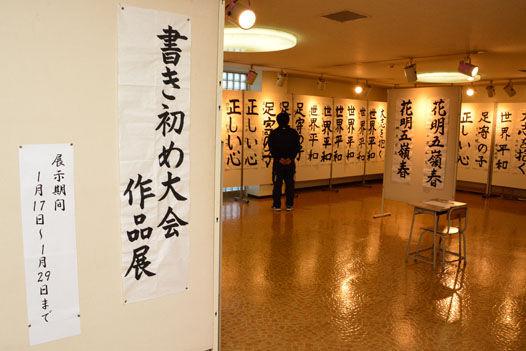 書き初め大会
作品展
展示期間
1月17日～1月29日まで
正しい心
正しい心
足寄の子
足寄の子
世界平和
世界平和
世界平和
世界平和
世界平和
大志を抱く
花明五嶺春
花明五嶺春
足寄の子
正しい心